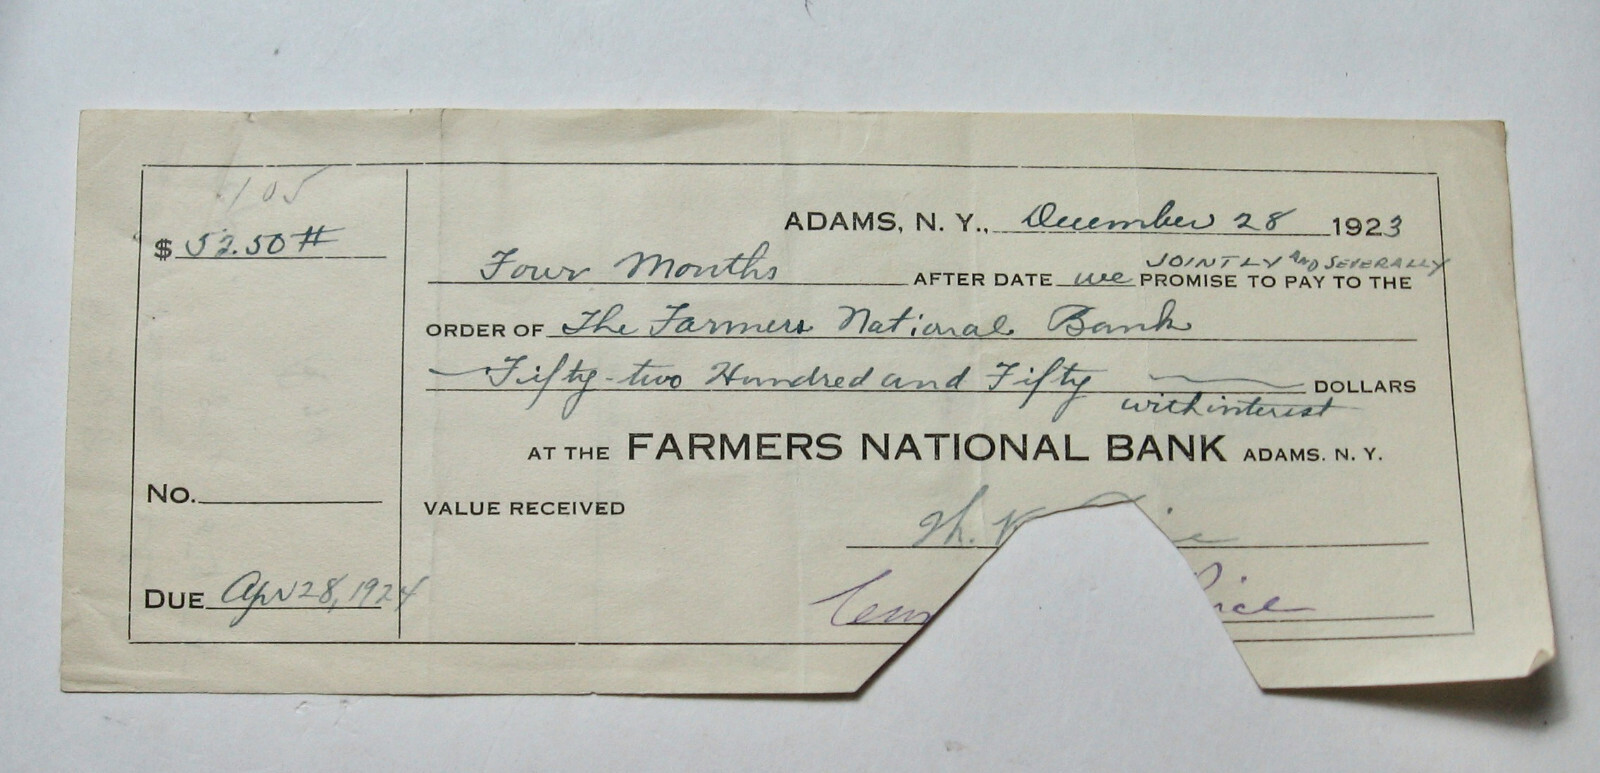 105
$ 52.50 #
ADAMS, N. Y., December 28 1923
JOINTLY AND SEVERALLY
Four Months AFTER DATE we PROMISE TO PAY TO THE
ORDER OF The Farmers National Bank
Fifty-two Hundred and Fifty DOLLARS
with interest
AT THE FARMERS NATIONAL BANK ADAMS. N. Y.
No.
VALUE RECEIVED
DUE Apr 28, 1924